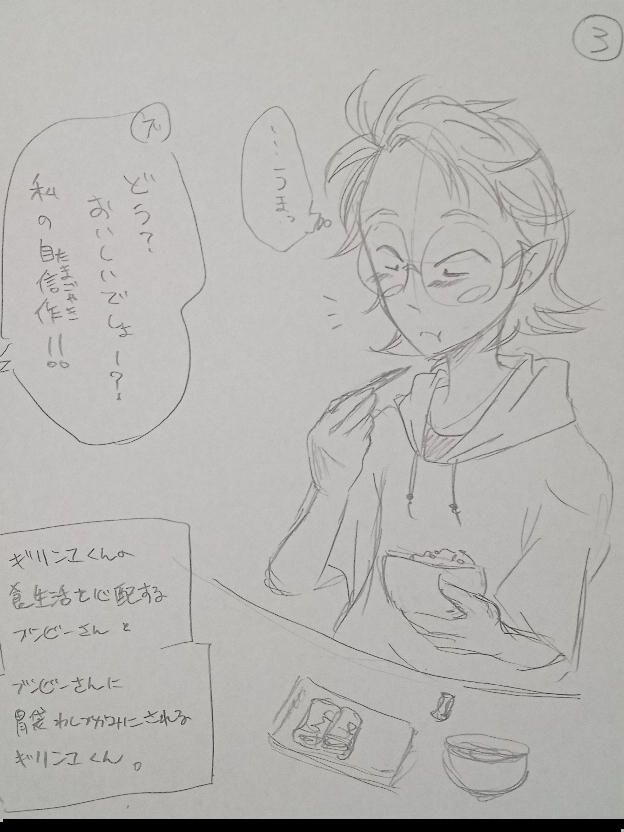 ③
…うまっ
ブ
どう？
おいしいでしょー？
私の自信作!!
たまごやき
ギリンコくんの
食生活を心配する
ブンビーさんと
ブンビーさんに
胃袋わしづかみにされる
ギリンコくん。